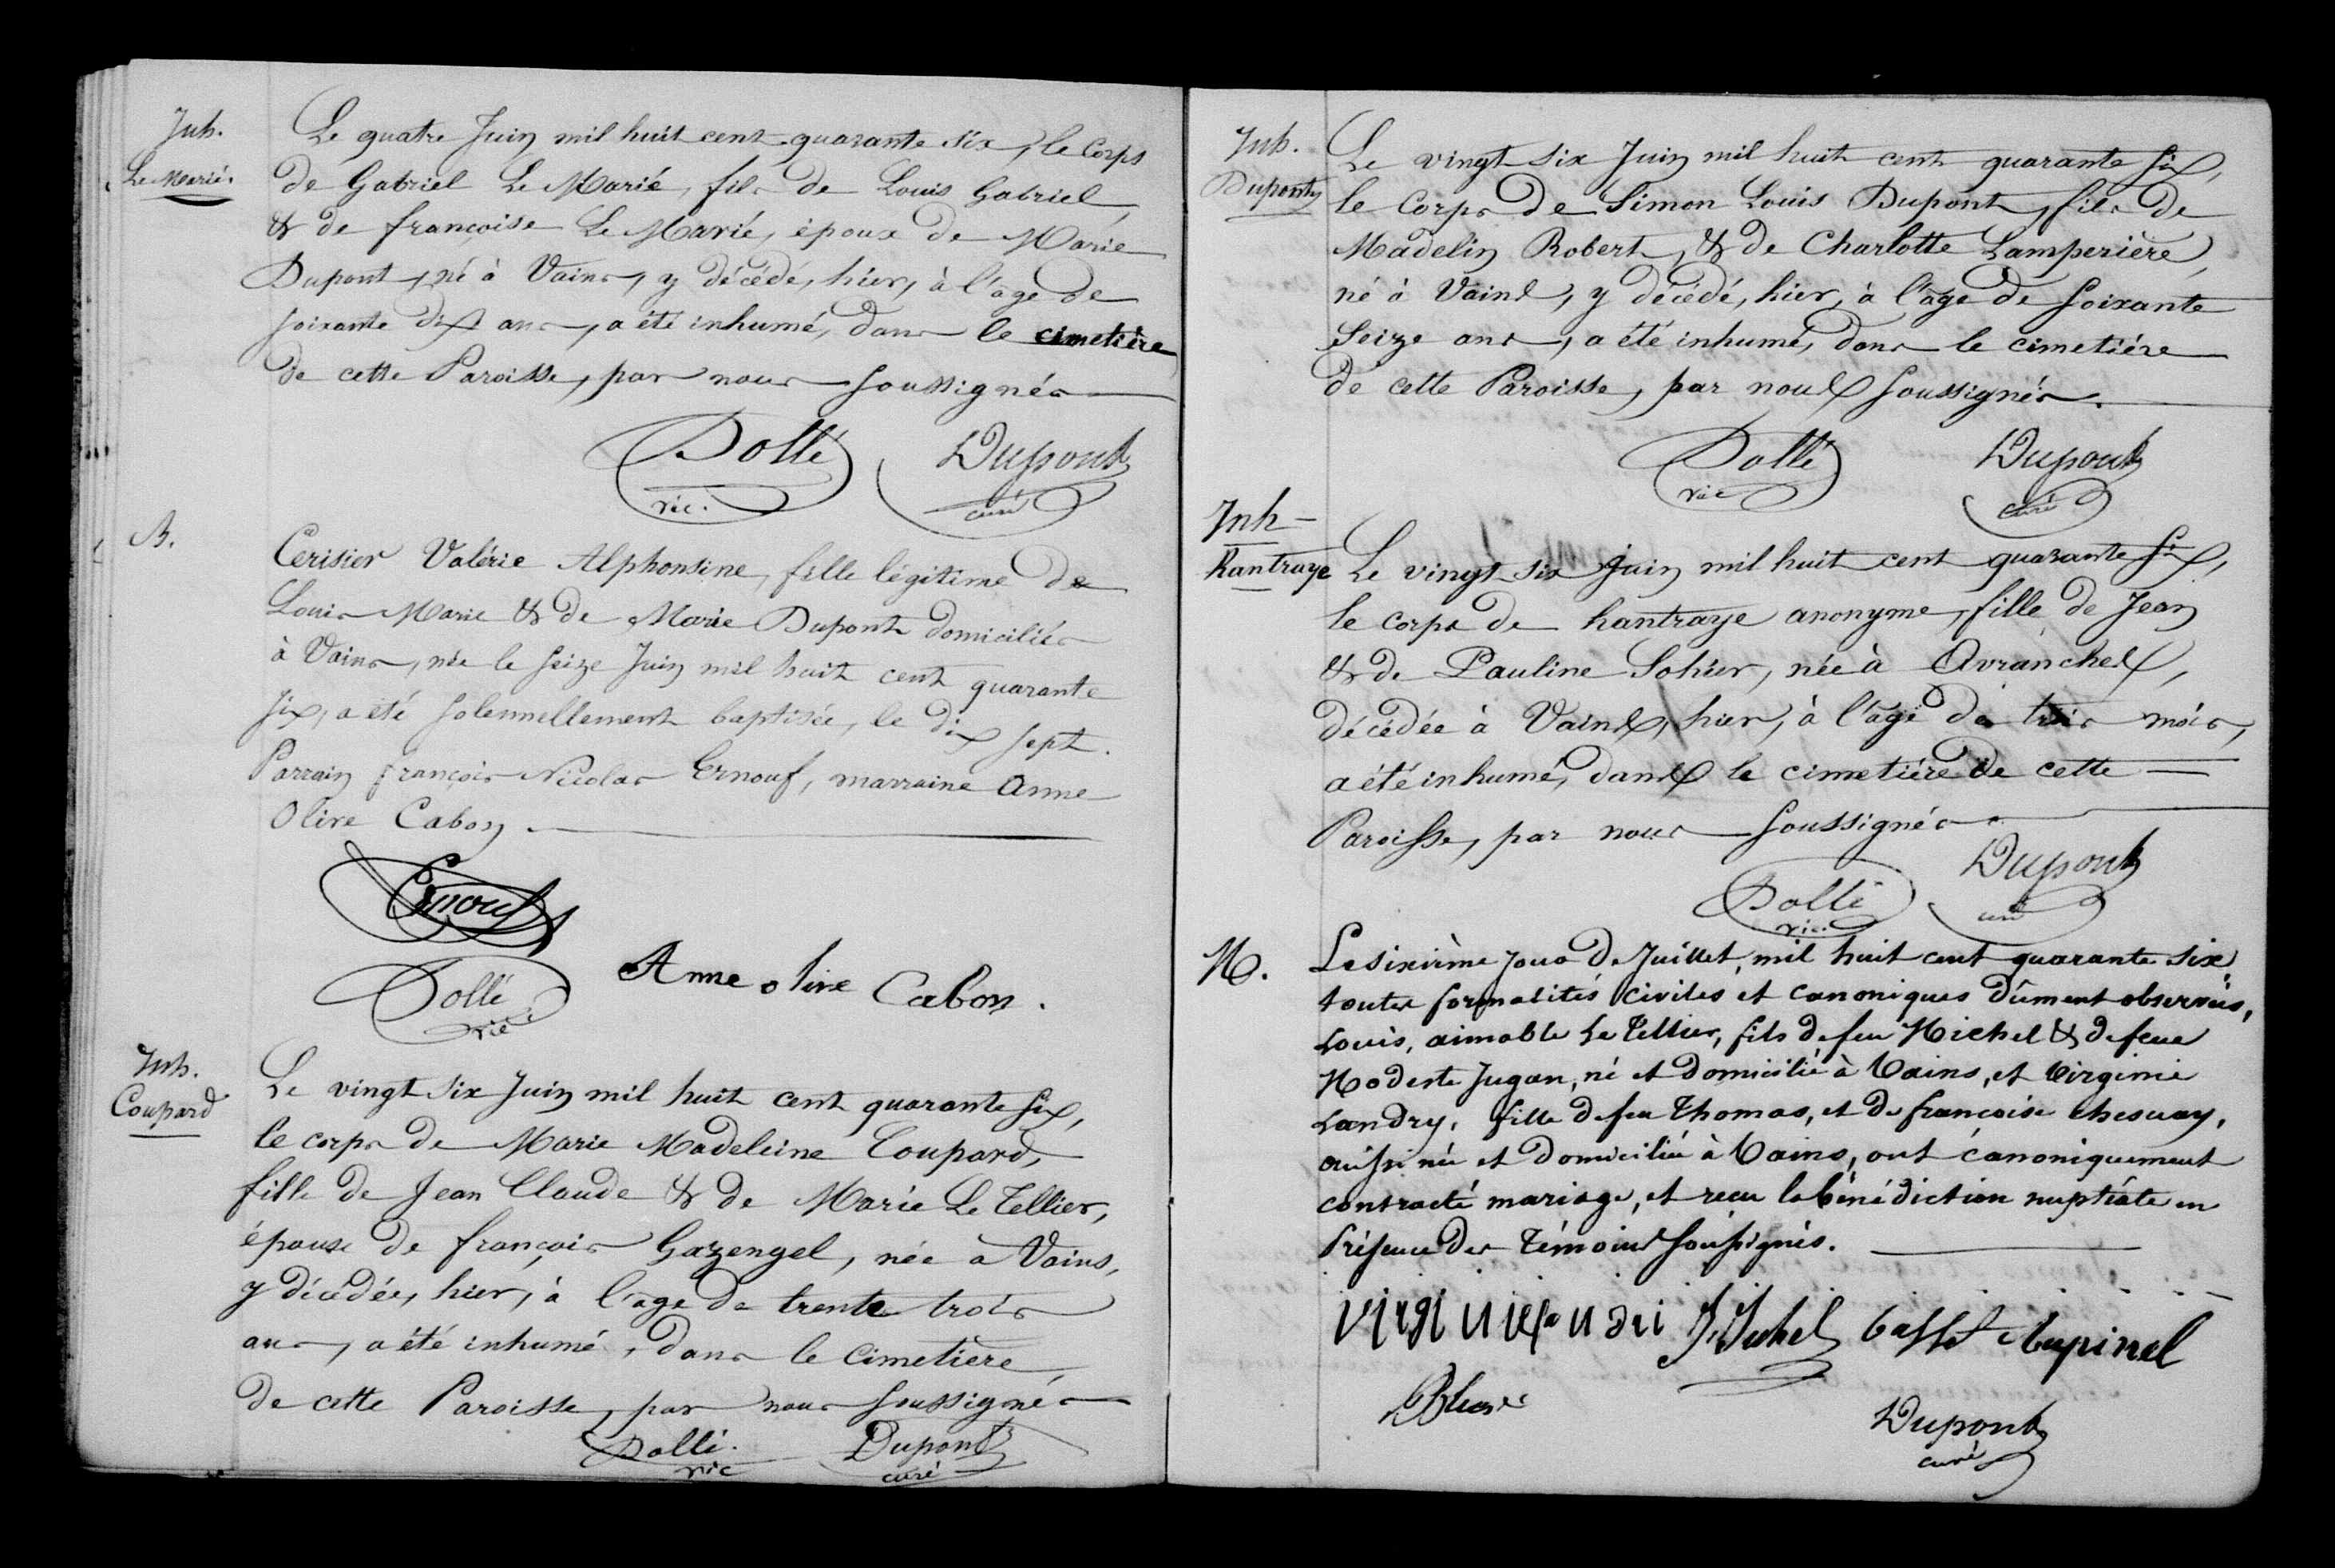 Inh.
Le Marié.
Le quatre Juin mil huit cent quarante six, le corps
de Gabriel Le Marié, fils de Louis Gabriel,
& de françoise Le Marié, époux de Marie
Dupont, né à Vains, y décédé, hier, à l'age de
soixante dix ans, a été inhumé, dans le cimetière
de cette Paroisse, par nous soussignés
Dollé Dupont
vic. curé
B.
Cerisier Valérie Alphonsine, fille légitime de
Louis Marie & de Marie Dupont domiciliés
à Vains, née le seize Juin mil huit cent quarante
six, a été solennellement baptisée, le dix sept.
Parrain françois Nicolas Ernouf, marraine Anne
Olive Cabon.
Ernouf
Anne olive Cabon.
Dollé
vic
Inh.
Coupard
Le vingt six Juin mil huit cent quarante six,
le corps de Marie Madeleine Coupard,
fille de Jean Claude & de Marie Le Tellier,
épouse de françois Gazengel, née à Vains,
y décédée, hier, à l'age de trente trois
ans, a été inhumé, dans le cimetière
de cette Paroisse, par nous soussignés
Dollé. Dupont
vic curé
Inh.
Dupont
Le vingt six Juin mil huit cent quarante six,
le corps de Simon Louis Dupont, fils de
Madelin Robert, & de Charlotte Lamperière,
né à Vains, y décédé, hier, à l'age de soixante
seize ans, a été inhumé, dans le cimetière
de cette Paroisse, par nous soussignés.
Dollé Dupont
vic curé
Inh
hantraye
Le vingt six Juin mil huit cent quarante six,
le corps de hantraye anonyme, fille de Jean
& de Pauline Sohier, née à Avranches,
décédée à Vains, hier, à l'age de trois mois,
a été inhumé, dans le cimetière de cette
Paroisse, par nous soussignés.
Dollé Dupont
vic. curé
M.
Le sixième jour de Juillet, mil huit cent quarante six,
toutes formalités civiles et canoniques dûment observées,
Louis, aimable Le Tellier, fils de feu Michel & de feue
Modeste Jugan, né et domicilié à Vains, et Virginie
Landry, fille de feu Thomas, et de françoise chesnay,
aussi née et domiciliée à Vains, ont canoniquement
contracté mariage, et reçu la bénédiction nuptiale en
présence des témoins soussignés.
Dupont
curé